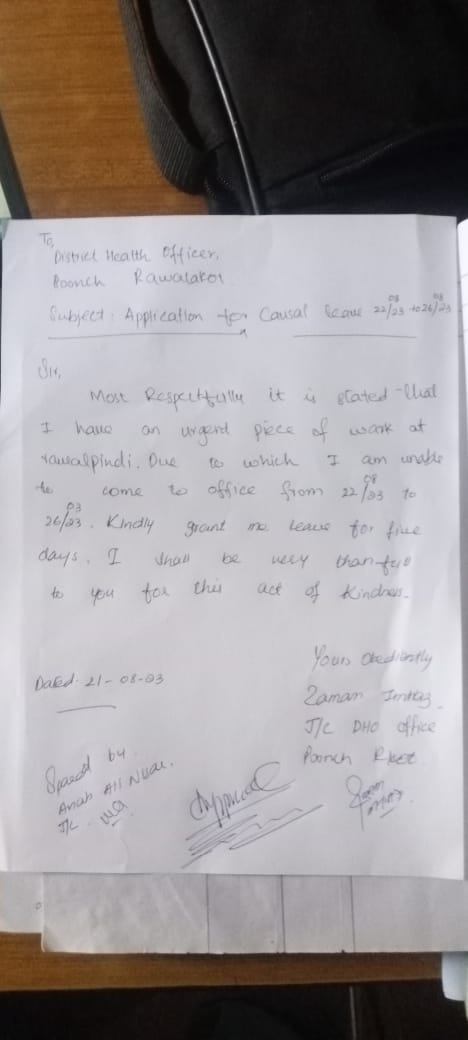 To,
District Health Officer,
Poonch Rawalakot
Subject: Application for Causal leave 22/08/23 to 26/08/23
Sir,
Most Respectfully it is stated that
I have an urgend piece of work at
rawalpindi. Due to which I am unable
to come to office from 22/08/23 to
26/03/23. Kindly grant me leave for five
days. I shall be very thankful
to you for this act of kindness.
Yours Obediently
Dated. 21-08-23
Zaman Imtiaz
J/C DHO office
Poonch Rkot
by
J/C
Approved